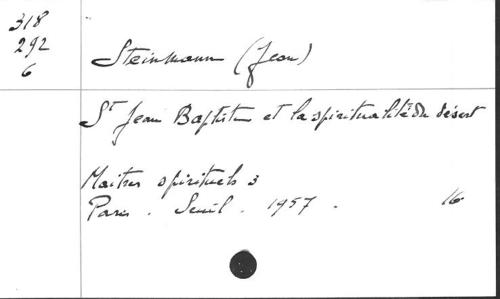 318
292
6
Steinmann (Jean)
St Jean Baptiste et la spiritualité du désert
Maitres spirituels 3
Paris. Seuil. 1957. 16